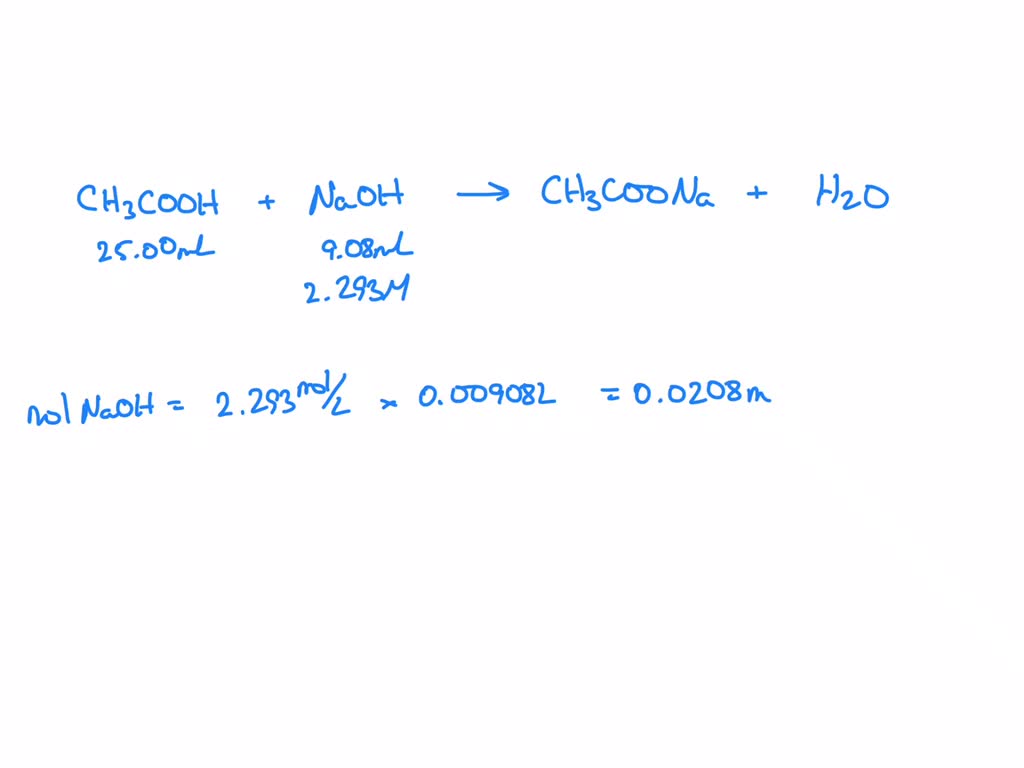 CH3COOH + NaOH → CH3COONa + H2O
25.00mL 9.08mL
2.293M
mol NaOH = 2.293 mol/L × 0.00908L = 0.0208m